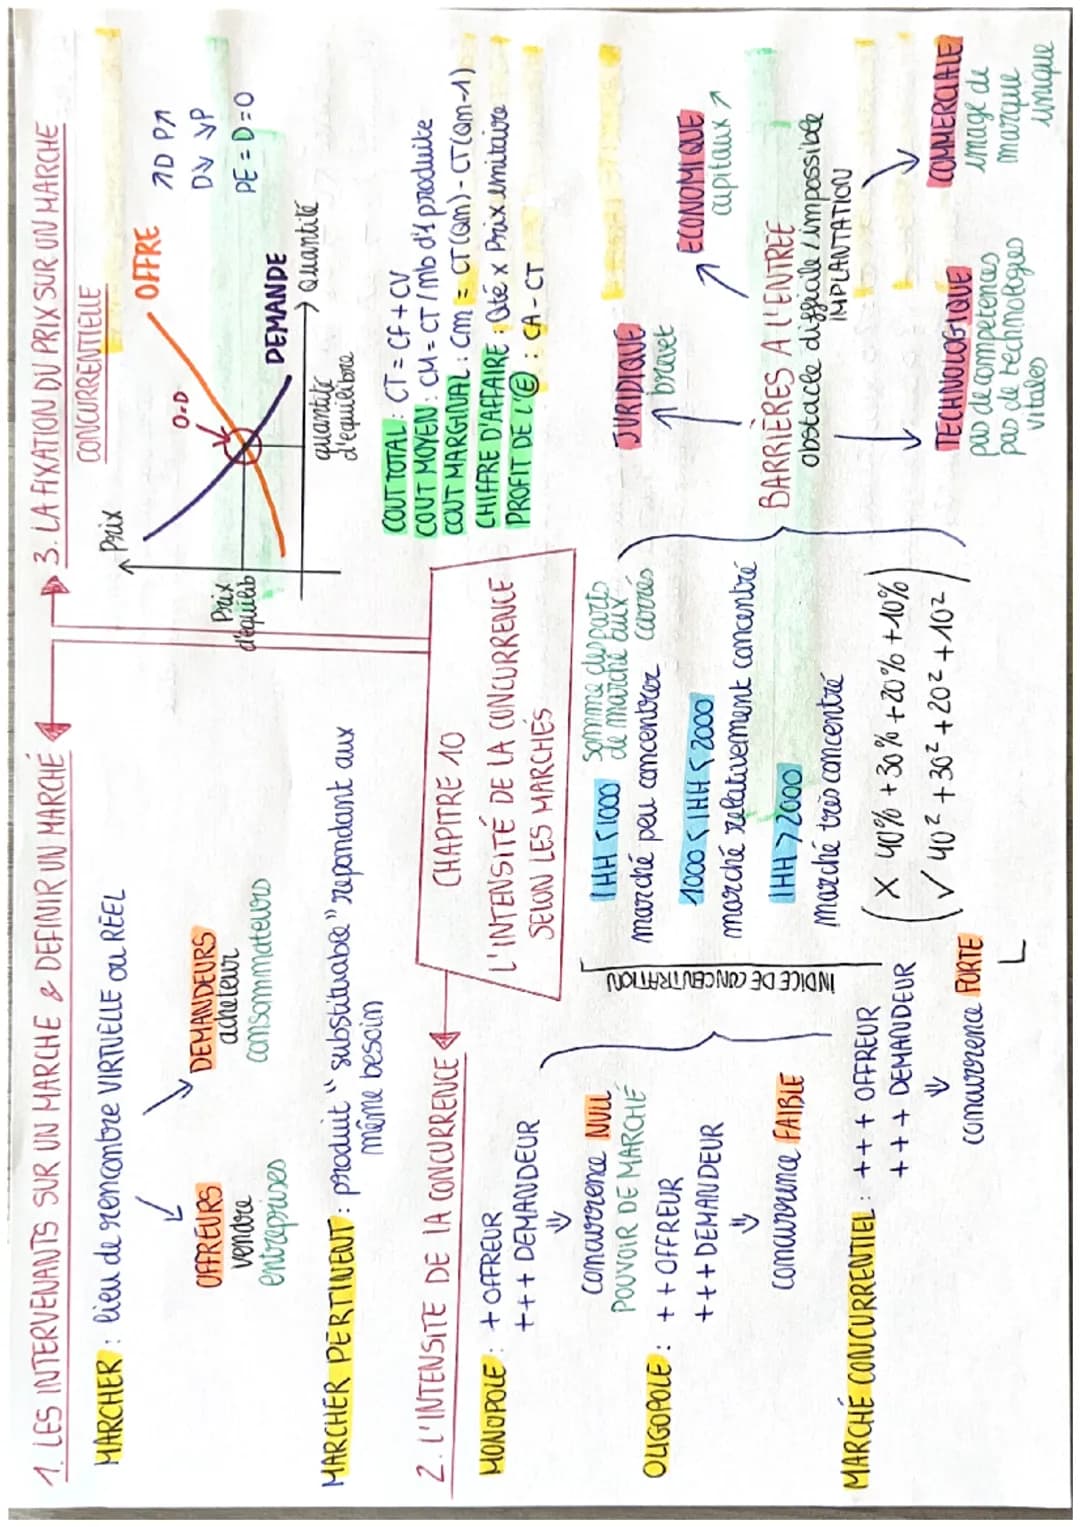 1. LES INTERVENANTS SUR UN MARCHE & DEFINIR UN MARCHÉ
MARCHER : lieu de rencontre VIRTUELLE OU RÉEL
OFFREURS
vendre
entreprises
DEMANDEURS
acheteur
consommateurs
MARCHER PERTINENT : produit "substituable" repondant aux
même besoin
3. LA FIXATION DU PRIX SUR UN MARCHE
CONCURRENTIELLE
Prix
OFFRE
O=D
DEMANDE
Prix
d'équilib
quantité
d'équilibre
Quantité
↗D P↗
D↘ ↘P
PE = D = O
COUT TOTAL : CT = CF + CV
COUT MOYEN : CM = CT / nb d'1 produite
COUT MARGINAL : Cm = CT(Qm) - CT(Qm-1)
CHIFFRE D'AFFAIRE : Qté x Prix unitaire
PROFIT DE L'(E) : CA - CT
CHAPITRE 10
L'INTENSITÉ DE LA CONCURRENCE
SELON LES MARCHÉS
2. L'INTENSITE DE LA CONCURRENCE
MONOPOLE : + OFFREUR
+++ DEMANDEUR
⇓
concurrence NULL
POUVOIR DE MARCHÉ
OLIGOPOLE : ++ OFFREUR
+++ DEMANDEUR
⇓
concurrence FAIBLE
MARCHÉ CONCURRENTIEL : +++ OFFREUR
+++ DEMANDEUR
⇓
concurrence FORTE
INDICE DE CONCENTRATION
IHH < 1000
somme des parts
de marché aux
carrés
marché peu concentrer
1000 < IHH < 2000
marché relativement concentré
IHH > 2000
marché très concentré
(X 40% + 30% + 20% + 10%)
(✓ 40² + 30² + 20² + 10²)
BARRIÈRES A L'ENTRÉE
obstacle difficile / impossible
IMPLANTATION
JURIDIQUE
brevet
ECONOMIQUE
capitaux ↗
TECHNOLOGIQUE
pas de compétences
pas de technologies
vitales
COMMERCIALE
image de
marque
unique